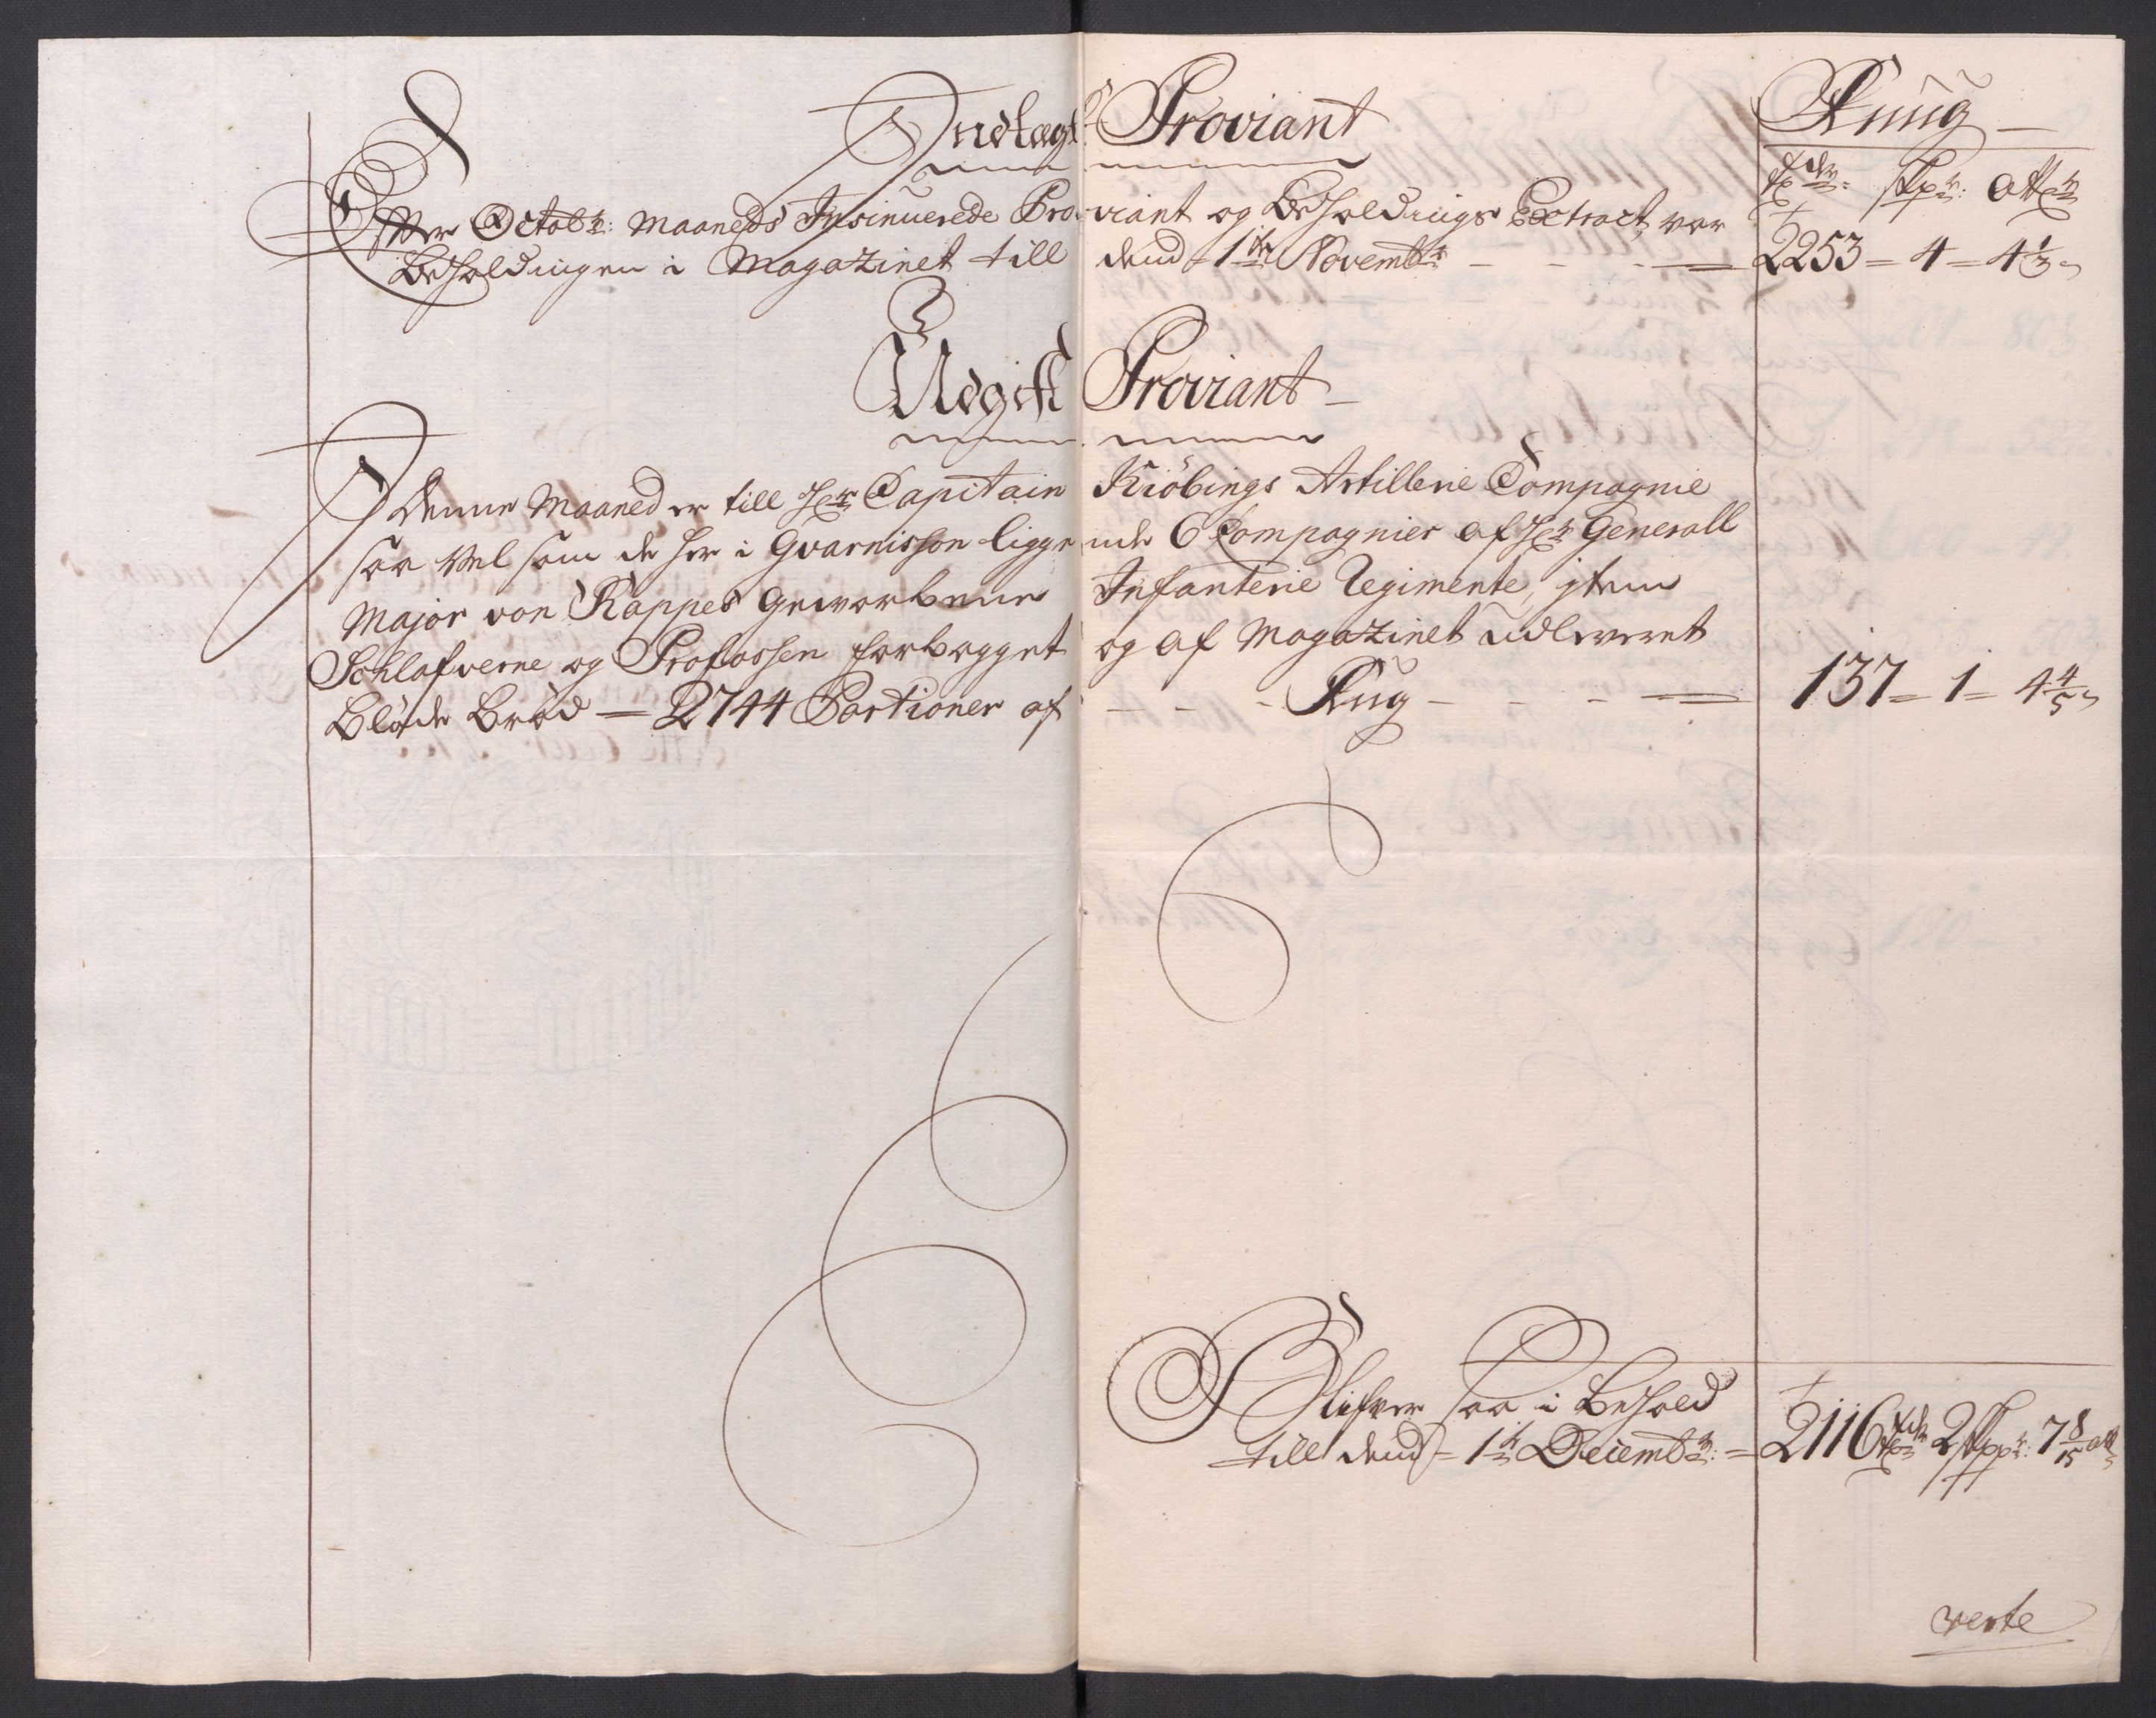 Indtægt Proviant
Rúúg
tdr: skpr: attr
Efter Octobr: Maaneds Insinuerede Proviant og Beholdnings Extract, var
Beholdningen i Magazinet till dend 1te Novembr — 2253 = 4 = 4 1/3
Udgift Proviant
I denne Maaned er till Hr Capitain Kiöbings Artillerie Compagnie
saa vel som de her i Gvarnisson liggende 6 Compagnier af Hr Generall
Major von Kappes Geworbene Infanterie Regimente, jtem
Schlafverne og Profossen forbagget og af Magazinet udleveret
Bløde Brød — 2744 Portioner af - - - Rúg - - - 137 = 1 = 4 4/5
Blifver saa i Behold
till dend = 1te Decembr: = 2116 tdr 2 skpr: 7 8/15 att
verte